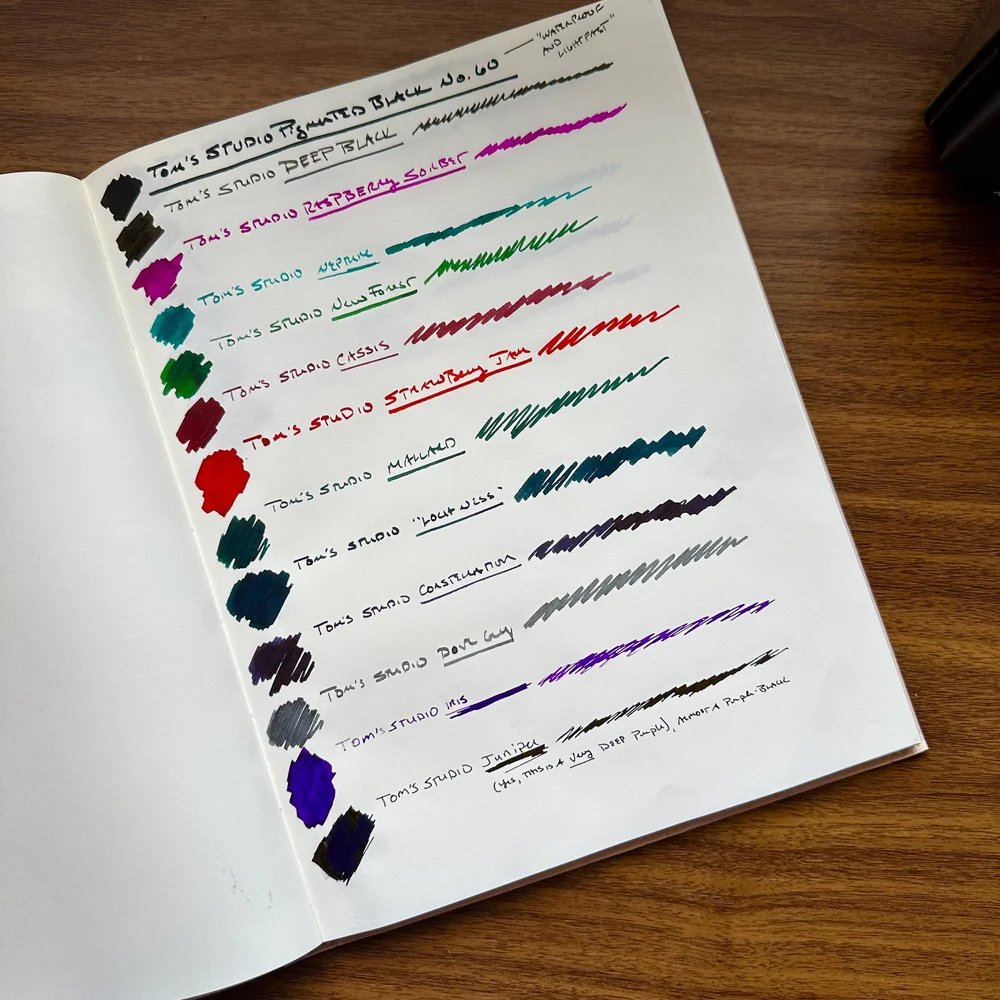 "WATERPROOF
AND
LIGHTFAST"
TOM'S STUDIO PIGMENTED BLACK NO. 60
TOM'S STUDIO DEEP BLACK
TOM'S STUDIO RASPBERRY SORBET
TOM'S STUDIO NEPTUNE
TOM'S STUDIO NEW FOREST
TOM'S STUDIO CASSIS
TOM'S STUDIO STRAWBERRY JAM
TOM'S STUDIO MALLARD
TOM'S STUDIO "LOCH NESS"
TOM'S STUDIO CONSTELLATION
TOM'S STUDIO DOVE GREY
TOM'S STUDIO IRIS
TOM'S STUDIO JUNIPER
(YES, THIS IS A VERY DEEP PURPLE), ALMOST A PURPLE-BLACK